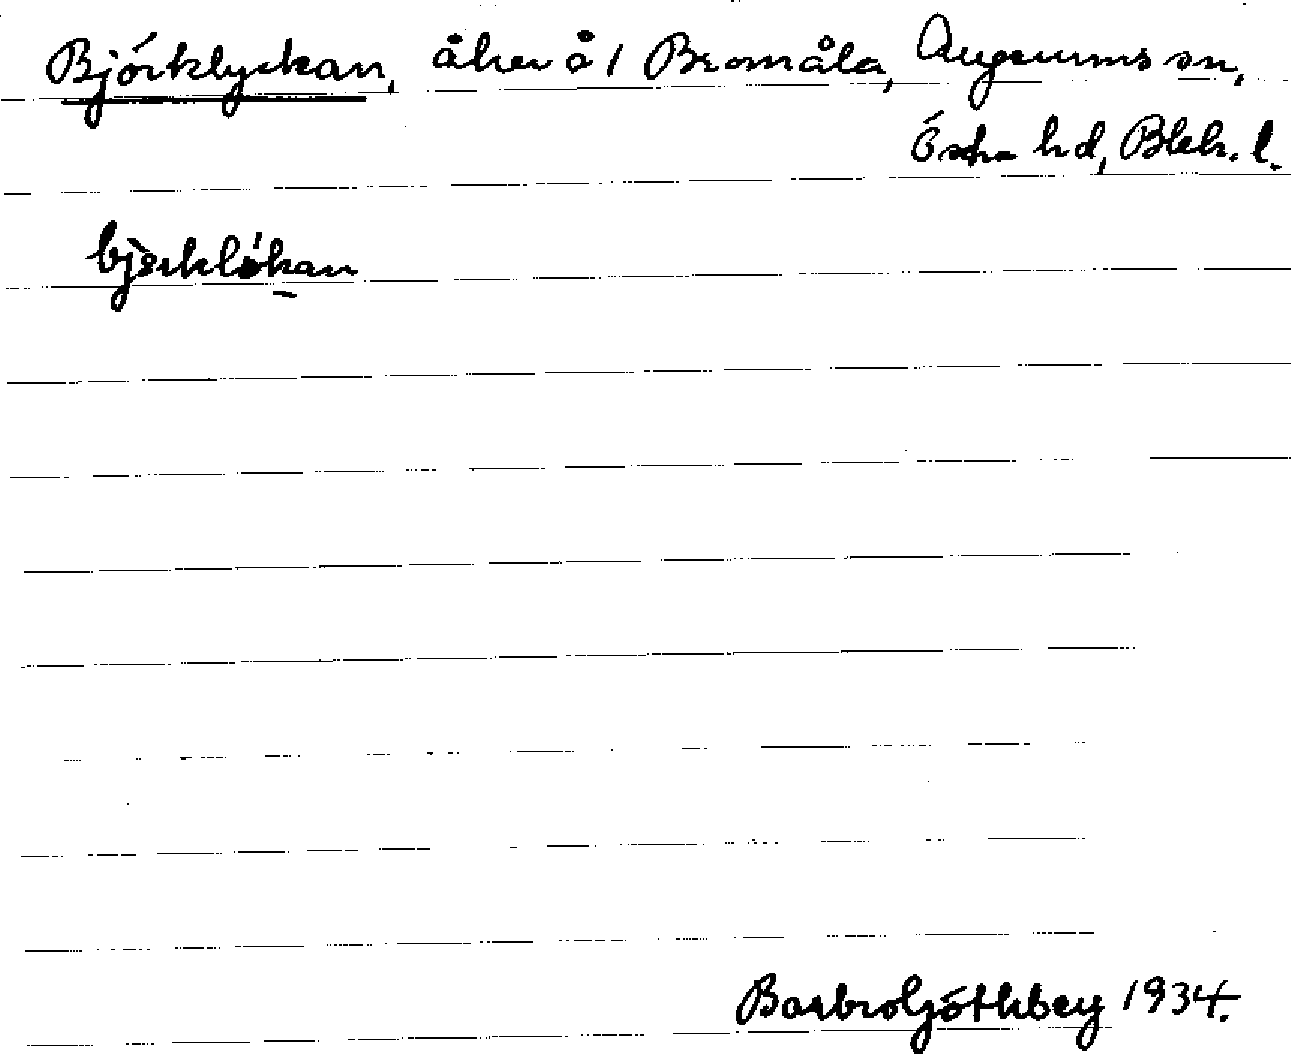 Björklyckan, åker å 1 Bromåla, Augerums sn,
Östra hd, Blek. l.
bjèrklókan
Barbro Götberg 1934.